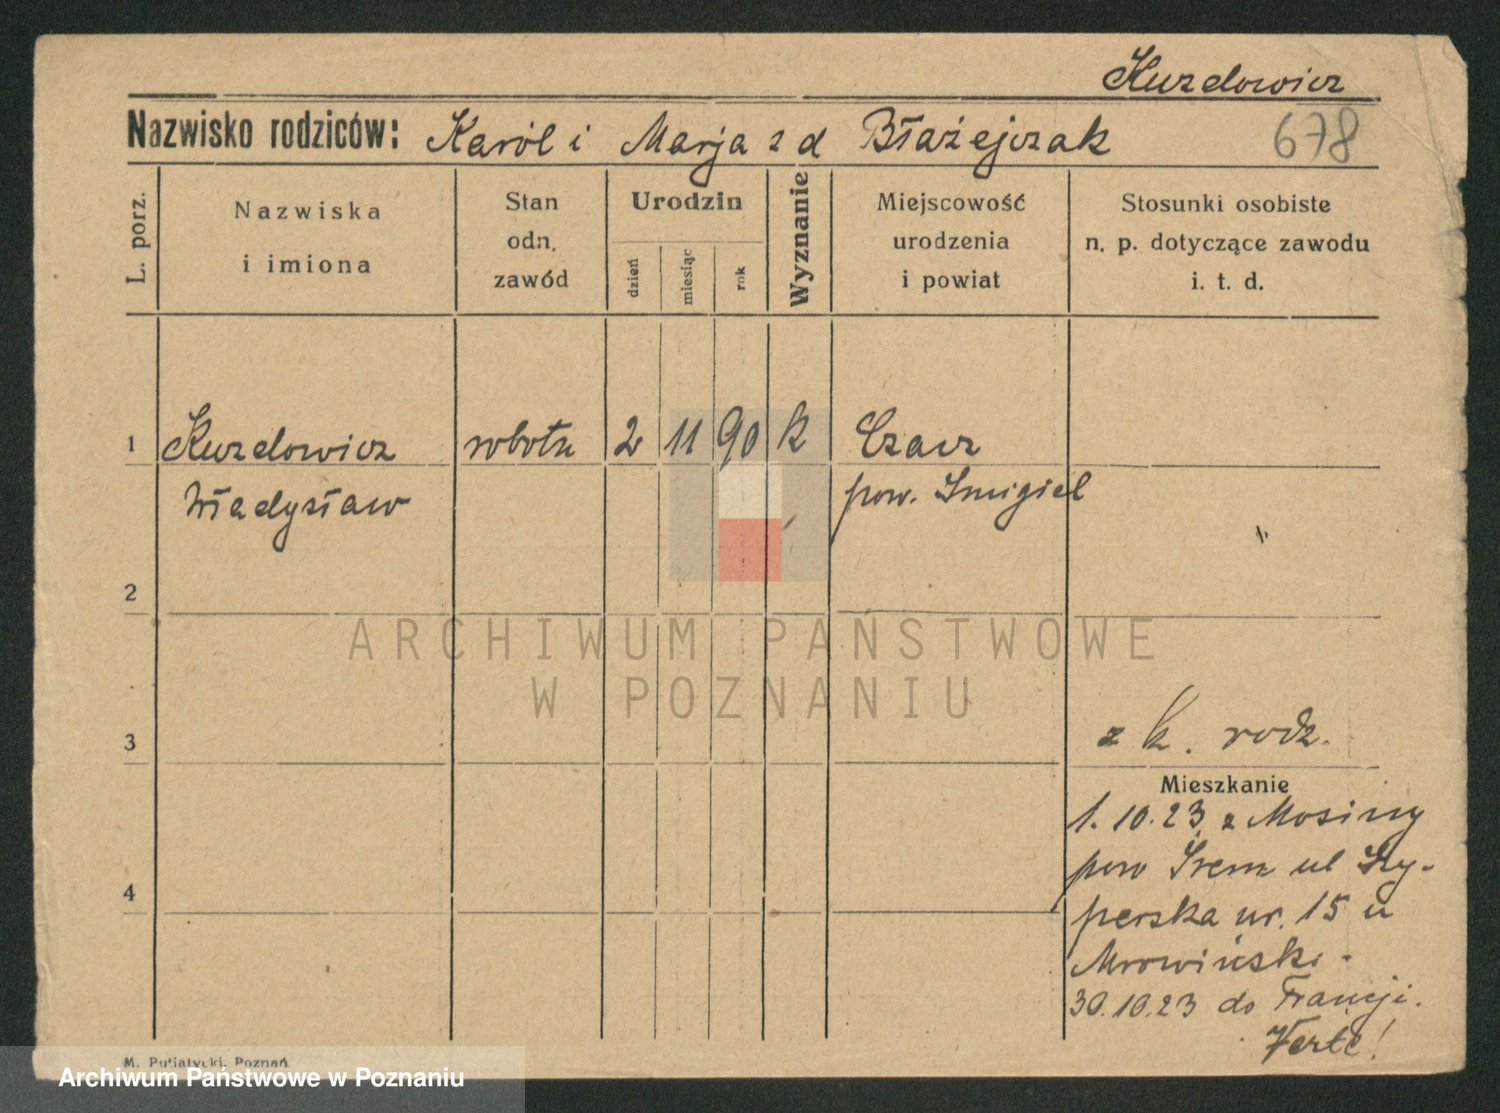 Kuzdowicz
Nazwisko rodziców: Karól i Marja z d Błażejczak 678
L. porz.
Nazwiska
i imiona
Stan
odn.
zawód
Urodzin
dzień
miesiąc
rok
Wyznanie
Miejscowość
urodzenia
i powiat
Stosunki osobiste
n. p. dotyczące zawodu
i. t. d.
1 Kuzdowicz robotn 2 11 90 k Czacz
Władysław pow. Śmigiel
2
ARCHIWUM PAŃSTWOWE
W POZNANIU
3 z k. rodz.
Mieszkanie
1.10.23 z Mosiny
pow Śrem ul Szy-
perska nr. 15 u
Mrowiński -
4
30.10.23 do Francji.
Verte!
M. Putiatycki, Poznań
Archiwum Państwowe w Poznaniu